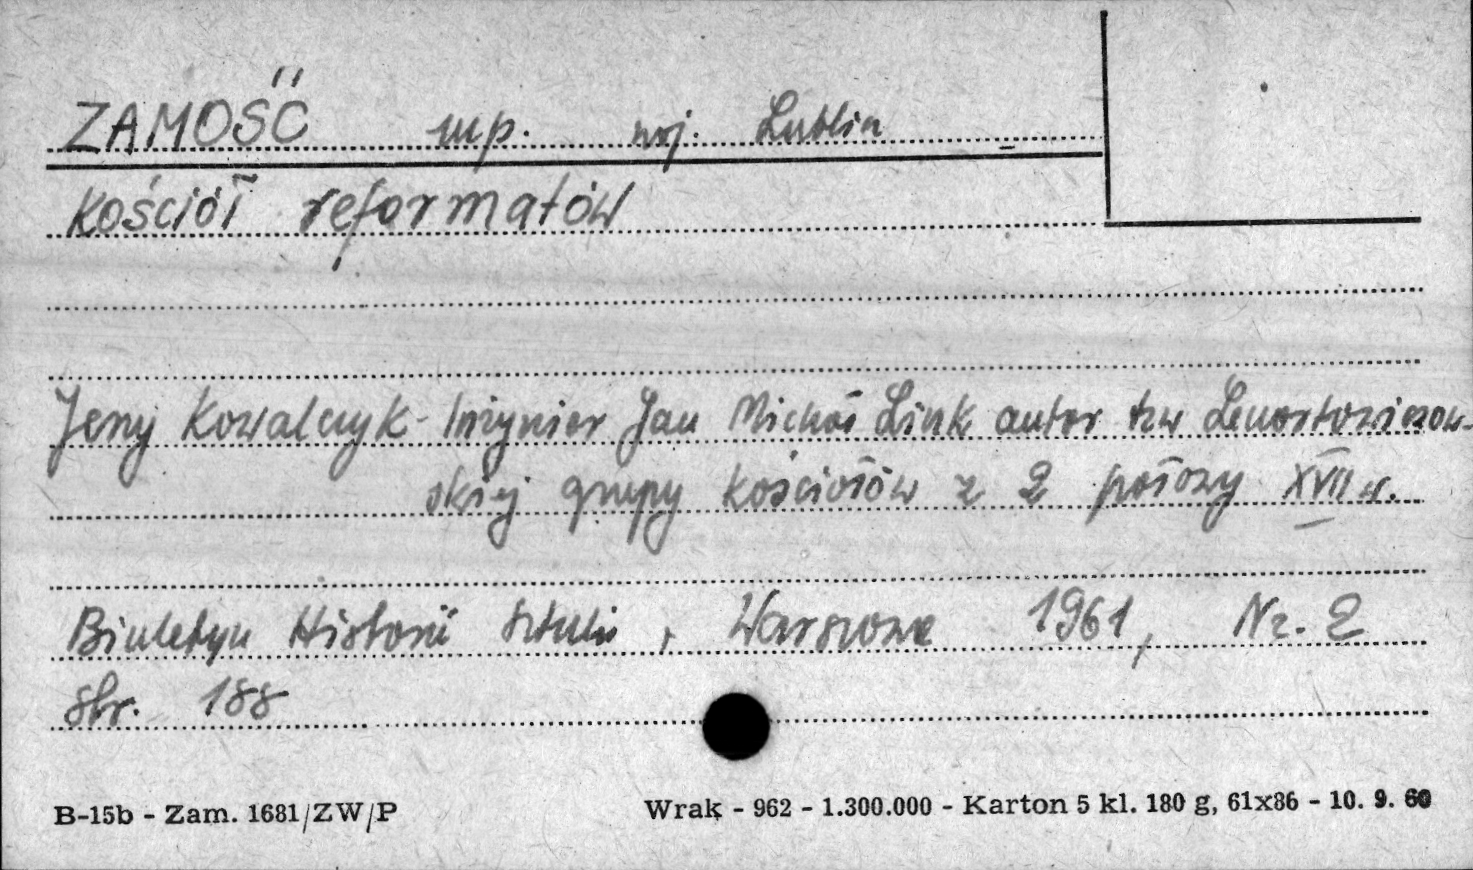 ZAMOŚĆ mp. woj. Lublin
Kościół reformatów
Jerzy Kowalczyk - Inżynier Jan Michał Link autor tzw Lenartowiczow-
skiej grupy kościołów z 2 połowy XVII w.
Biuletyn Historii Sztuki, Warszawa 1961, Nr. 2
str. 188
B-15b - Zam. 1681/ZW/P Wrak - 962 - 1.300.000 - Karton 5 kl. 180 g, 61x86 - 10. 9. 60